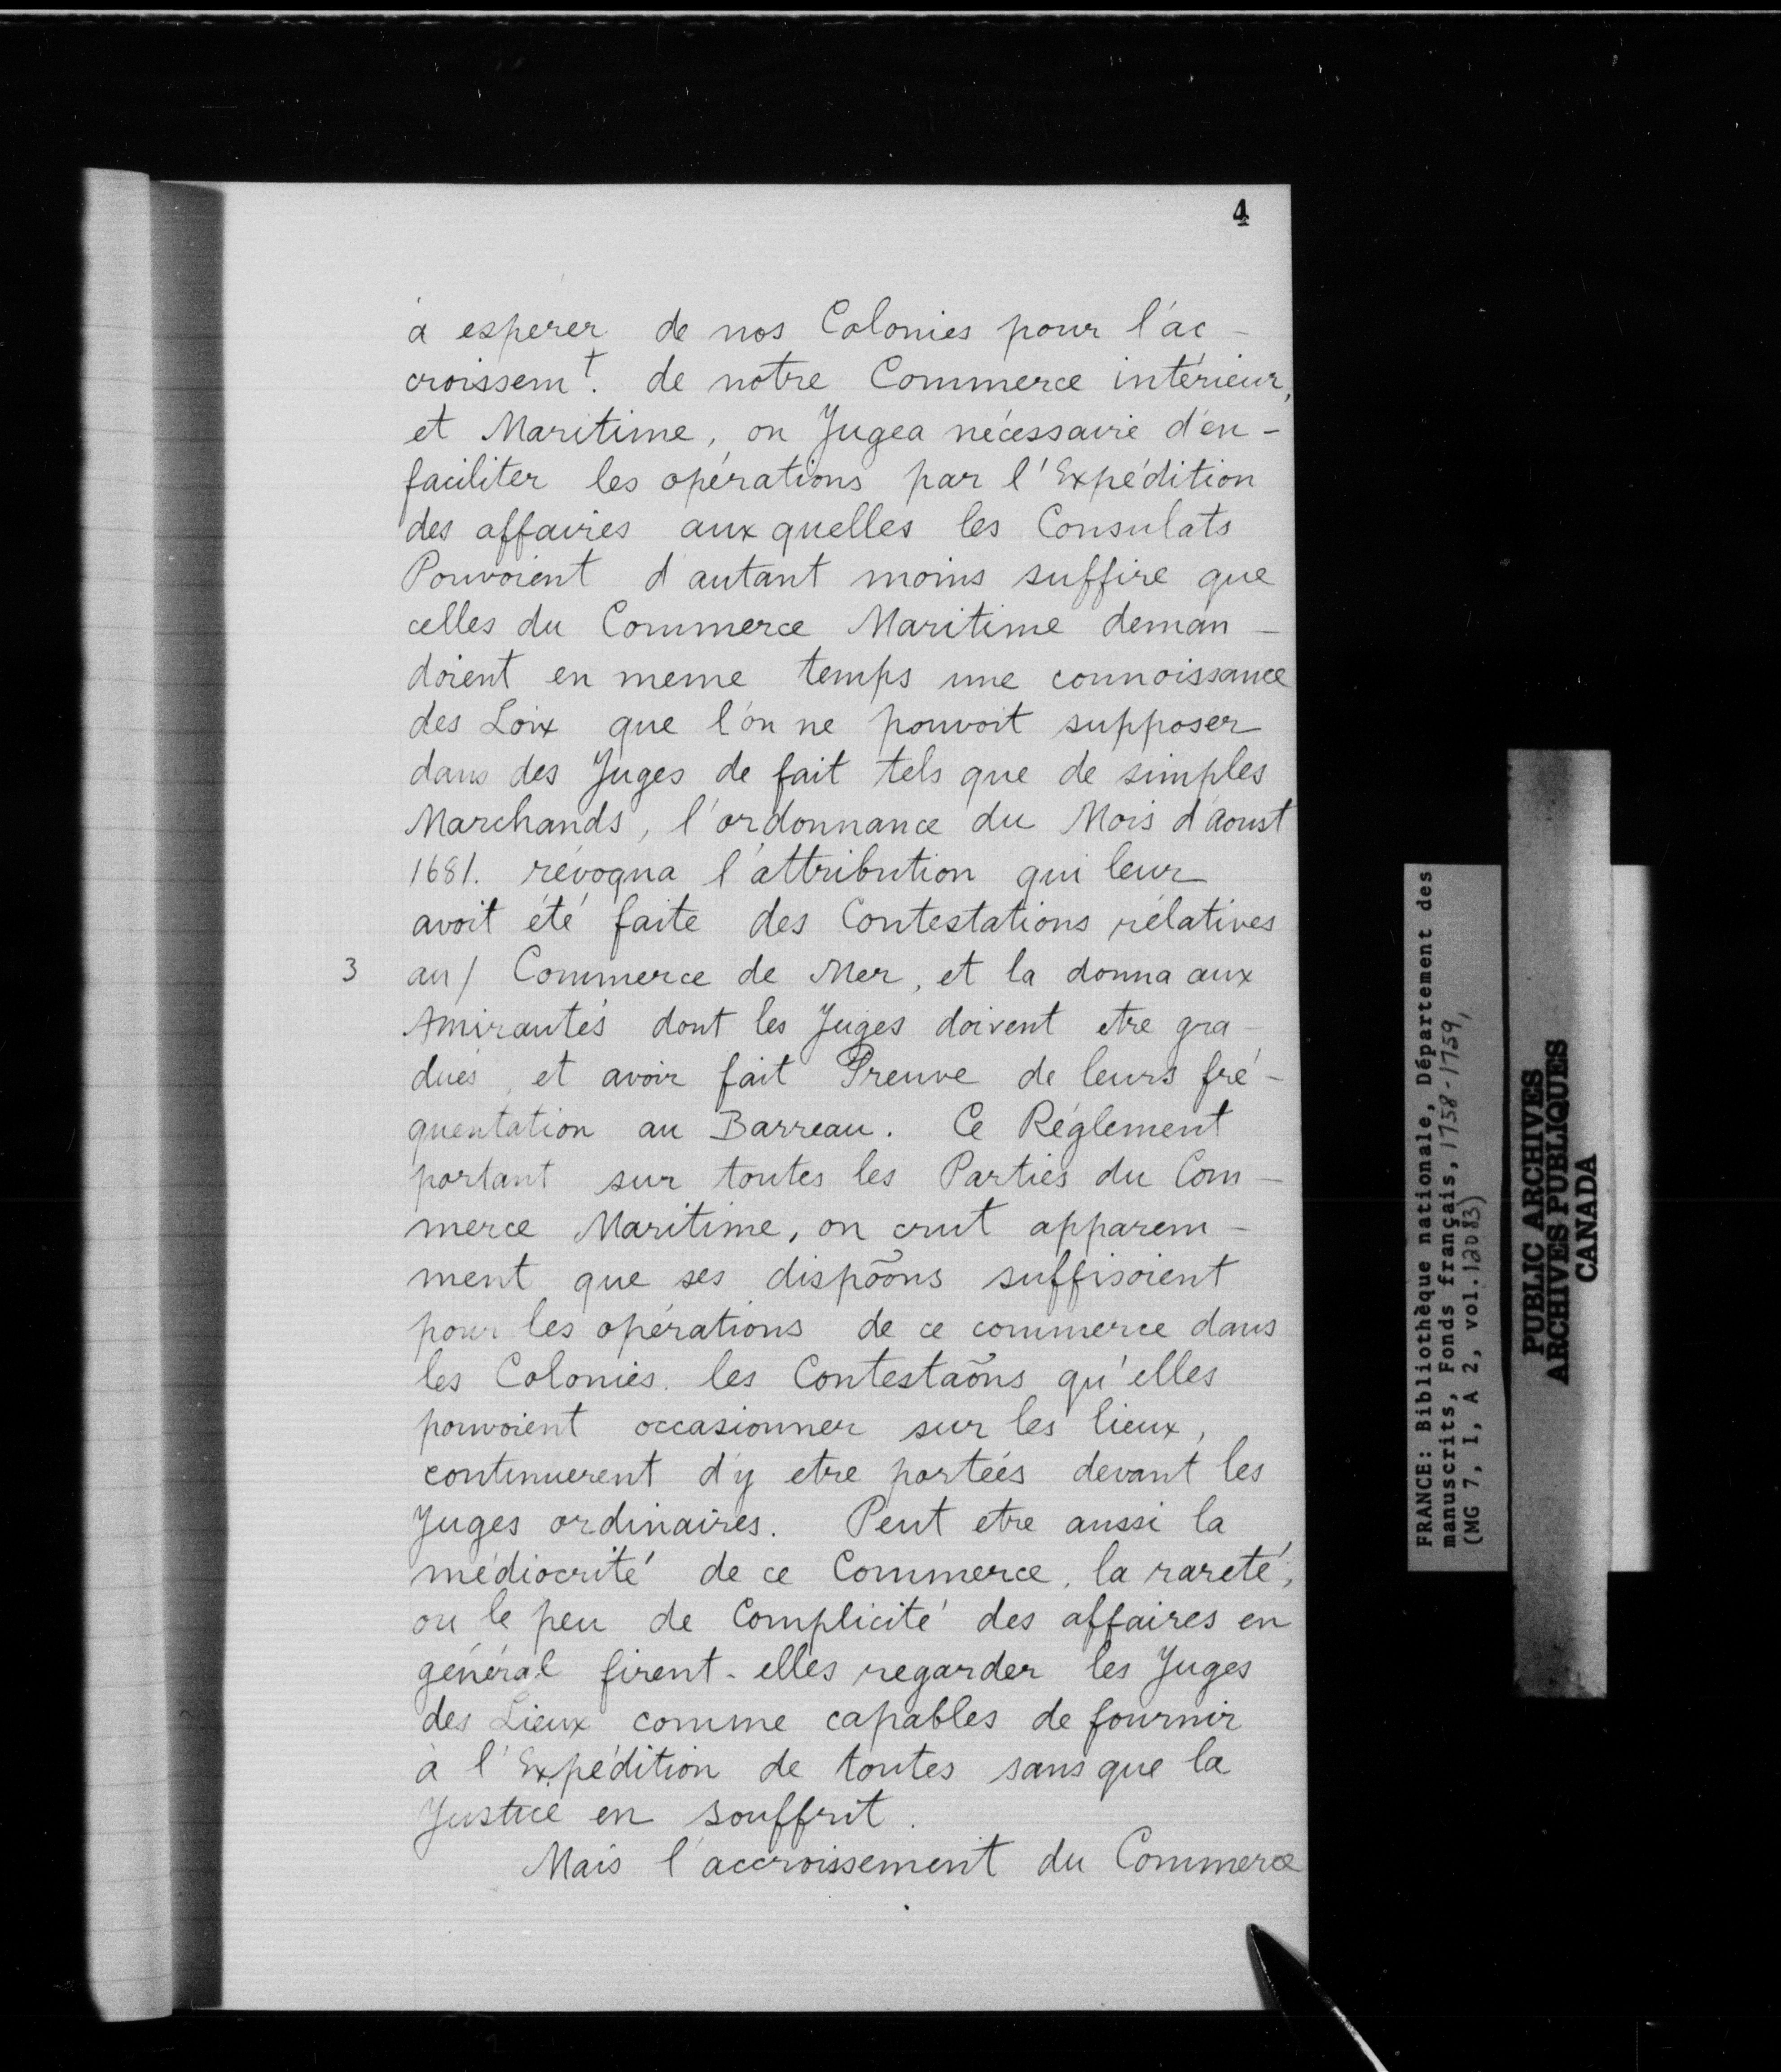 4
à esperer de nos Colonies pour l'ac-
croissemt. de notre Commerce intérieur,
et Maritime, on Jugea nécessaire d'en-
faciliter les opérations par l'Expédition
des affaires aux quelles les Consulats
Pouvoient d'autant moins suffire que
celles du Commerce Maritime deman-
doient en meme temps une connoissance
des Loix que l'on ne pouvoit supposer
dans des Juges de fait tels que de simples
Marchands, l'ordonnance du Mois d'Aoust
1681. révoqua l'attribution qui leur
avoit été faite des Contestations rélatives
3 au/ Commerce de Mer, et la donna aux
Amirautés dont les Juges doivent etre gra-
dués, et avoir fait Preuve de leurs fré-
quentation au Barreau. Ce Réglement
portant sur toutes les Parties du Com-
merce Maritime, on crut apparem-
ment que ses dispõons suffisoient
pour les opérations de ce commerce dans
les Colonies. les Contestaõns qu'elles
pouvoient occasionner sur les lieux,
continuerent d'y etre portées devant les
Juges ordinaires. Peut etre aussi la
médiocrité de ce Commerce, la rareté,
ou le peu de Complicité des affaires en
général firent-elles regarder les Juges
des Lieux comme capables de fournir
à l'Expédition de toutes sans que la
Justice en souffrit.
Mais l'accroissement du Commerce
FRANCE: Bibliothèque nationale, Département des
manuscrits, Fonds français, 1758-1759,
(MG 7, I, A 2, vol. 12083)
PUBLIC ARCHIVES
ARCHIVES PUBLIQUES
CANADA